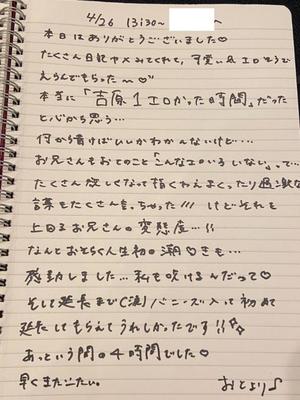 4/26 13:30~
本日はありがとうございました♡
たくさん日記や人みてくれて、可愛い&エロそうで
えらんでもらった〜♡
本当に「吉原1エロかった時間」だった
と心から思う…
何から書けばいいかわかんないけど…
お兄さんもおとのこと「こんなエロいるいない」って…
たくさん欲しくなって指くわえまくったり過激な
言葉をたくさん言っちゃった!!! けどそれを
上回るお兄さんの変態度…!!
なんとおそらく人生初の潮♡きも…
感動しました…私も吹けるんだって♡
そして延長まで(涙)バニーズ入って初めて
延長してもらえてうれしかったです!!
あっという間の4時間でした♡
早くまたこたい。 おとより♪